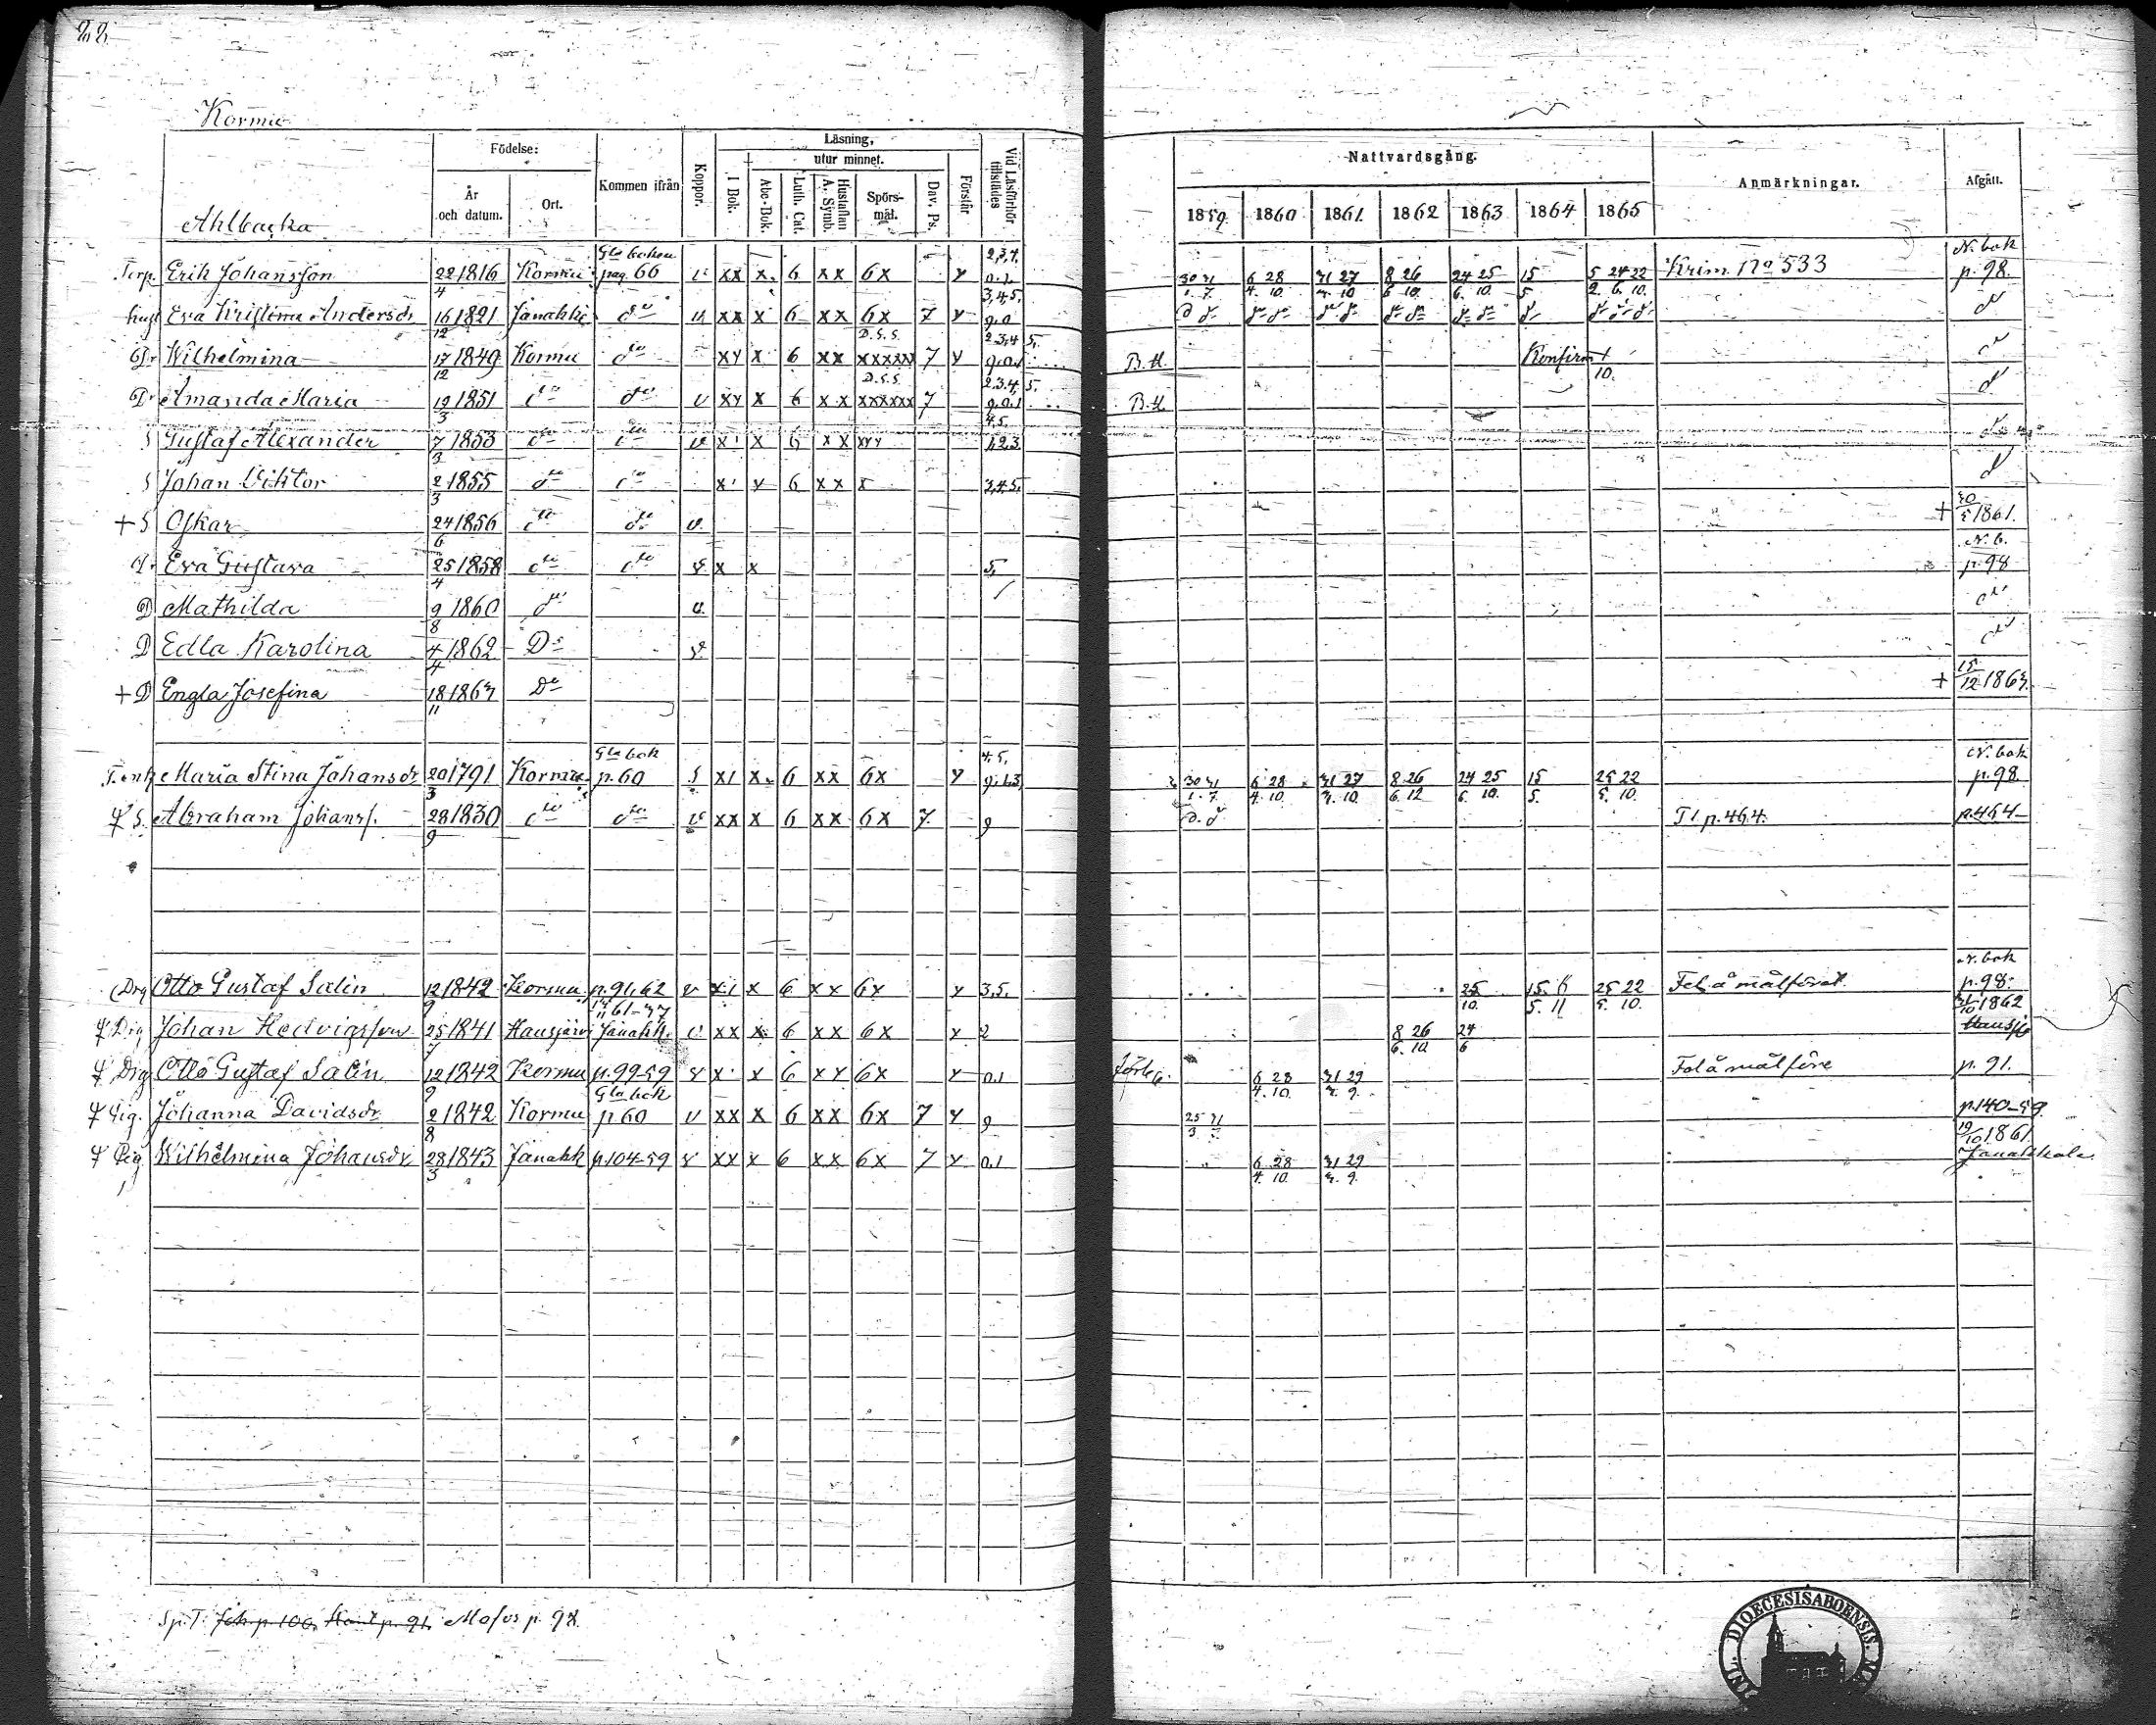 22
Kormu
Ahlbacka
Födelse:
År och datum.
Ort.
Kommen ifrån
Koppor.
Läsning,
utur minnet.
I Bok.
Abc-Bok.
Luth. Cat.
Hustaflan A. Symb.
Spörsmål.
Dav. Ps.
Förstår
Vid Läsförhör tillstädes
Nattvardsgång.
1859. 1860 1861. 1862 1863 1864 1865
Anmärkningar.
Afgått.
Gla boken 2,3,4. N. bok
Torp. Erik Johansson 22/4 1816 Kormu pag. 66 v xx x. 6 xx 6x y 0.1. 30/1. 31/7. 6/4. 28/10. 31/3. 27/10 8/6 26/10. 24/6. 25/10. 15/5 5/2. 24/6. 22/10. Krim. No 533 p. 98.
3,4,5.
hust Eva Kristina Andersdr 16/12 1821 Janakki do v xx x 6 xx 6x 7 y 9.0 do
D.S.S. 2.3.4 5.
Dr Wilhelmina 17/12 1849 Kormu do xy x 6 xx xxxxx 7 y 9.0.1 B.H. Konfirm 1/10. do
D.S.S. 2.3.4. 5.
Dr Amanda Maria 12/3 1851 do do v xy x 6 xx xxxxxx 7 9.0.1 B.H. do
4.5.
S Gustaf Alexander 7/3 1853 do do v x x 6 xx xyy 1.2.3 do
S Johan Viktor 2/3 1855 do do x y 6 xx x 3,4,5. do
+ S Oskar 24/6 1856 do do v. + 30/5 1861.
N. b.
D. Eva Gustava 25/4 1858 do do v x x 5. p. 98
D Mathilda 9/8 1860 do v. do
D Edla Karolina 4/4 1862 Do v do
+ D Engla Josefina 18/11 1863 Do + 15/12 1863.
Gla bok 4.5. N. bok
T. enk Maria Stina Johansdr 20/3 1791 Kormu p. 60 S x1 x. 6 xx 6x y 9.1.3 30/1. 31/7. 6/4. 28/10. 31/3. 27/10. 8/6. 26/12 24/6. 25/10. 15/5. 25/5. 22/10. p. 98
S. Abraham Johanss. 28/9 1830 do do v xx x 6 xx 6x 7 9 do do Tl. p. 464. p. 464
N. bok
Drg Otto Gustaf Salin 12/9 1842 Kormu p. 91, 62 v x1 x 6 xx 6x y 3,5. 25/10. 15/5. 6/11 25/5. 22/10. Fel å målföret p. 98.
31/10 1862
Drg Johan Hedvigsson 25/7 1841 Hausjärvi Janakk. v xx x 6 xx 6x y 2 8/6. 26/10 24/6 Hausjo
Drg Otto Gustaf Salin 12/9 1842 Kormu p. 99-59 v x x 6 xy 6x y 0.1 6/4. 28/10. 31/3. 29/9. Fel å målföre p. 91.
Gla bok p. 140-59
Pig. Johanna Davidsdr 2/8 1842 Kormu p 60 v xx x 6 xx 6x 7 y 9 25/3 31/7
19/10 1861.
Pig Wilhelmina Johansdr 28/3 1843 Janakk p. 104-59 v xx x 6 xx 6x 7 y 0.1 6/4. 28/10. 31/3. 29/9. Janakkala
Sp. T. Joh. p. 100, p. 91. p. 98.
DIOECESIS ABOENSIS